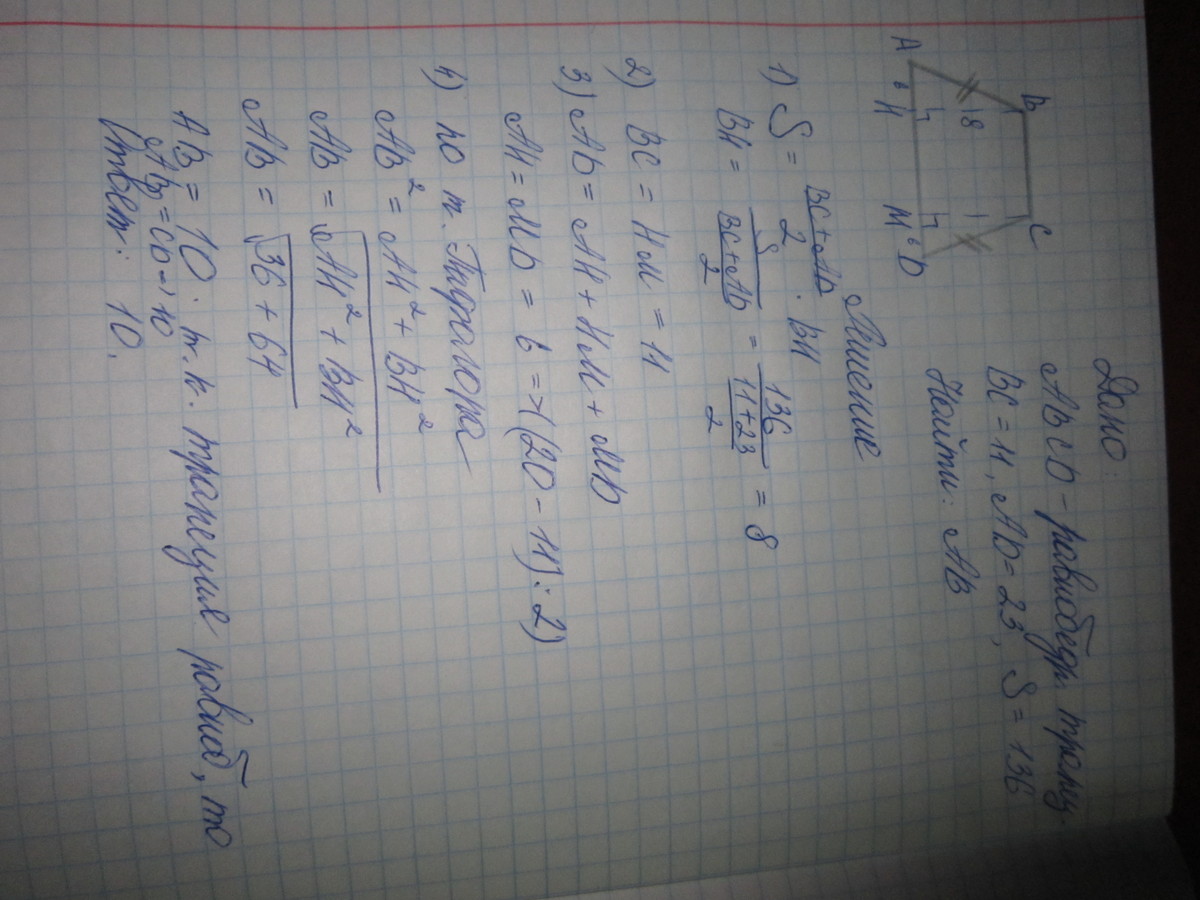 Дано:
ABCD - равнобедр. трапец.
BC = 11, AD = 23, S = 136
Найти: AB
B C
8
A 6 H M 6 D
Решение
1) S = BC+AD/2 · BH
BH = S/(BC+AD/2) = 136/(11+23/2) = 8
2) BC = HM = 11
3) AD = AH + HM + MD
AH = MD = 6 => ((20 - 11) : 2)
4) по т. Пифагора
AB² = AH² + BH²
AB = √AH² + BH²
AB = √36 + 64
AB = 10. т.к. трапеция равноб, то
AB = CD => 10
Ответ: 10.